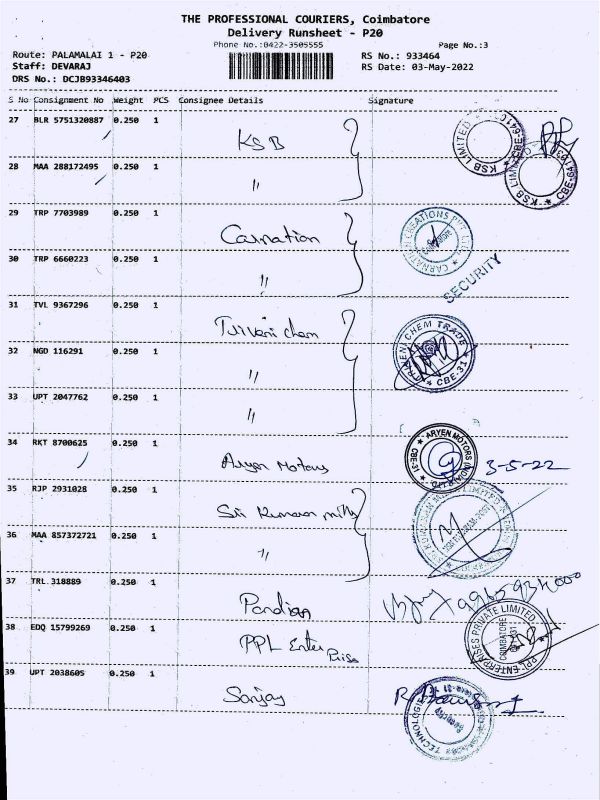 THE PROFESSIONAL COURIERS, Coimbatore
Delivery Runsheet - P20
Phone No.:0422-3505555 Page No.:3
Route: PALAMALAI 1 - P20 RS No.: 933464
Staff: DEVARAJ RS Date: 03-May-2022
DRS No.: DCJB93346403
S No Consignment No Weight PCS Consignee Details Signature
27 BLR 5751320887 0.250 1 KSB
KSB LIMITED ★ CBE-641
28 MAA 288172495 0.250 1 "
29 TRP 7703989 0.250 1 Carnation
CARNATION CREATIONS PVT
30 TRP 6660223 0.250 1 "
SECURITY
31 TVL 9367296 0.250 1 Triveni chem
TRIVENI CHEM TRADE ★ CBE-31 ★
32 NGD 116291 0.250 1 "
33 UPT 2047762 0.250 1 "
34 RKT 8700625 0.250 1 Aryen Motors
ARYEN MOTORS CBE-31 3-5-22
35 RJP 2931028 0.250 1 Sri Kumaran mills
36 MAA 857372721 0.250 1 "
37 TRL 318889 0.250 1 Pandian
38 EDQ 15799269 0.250 1 PPL Enter
Prise
PPL ENTERPRISES PRIVATE LIMITED COIMBATORE
39 UPT 2038605 0.250 1 Sanjay
Security